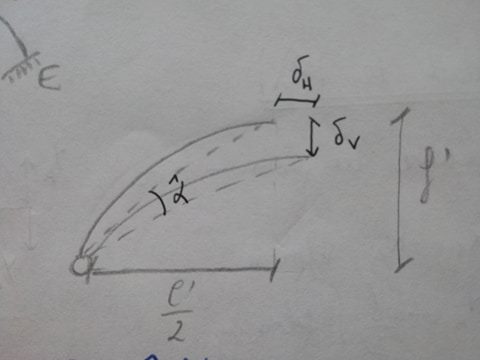 E
δH
δv
α̂
f'
ℓ'
2